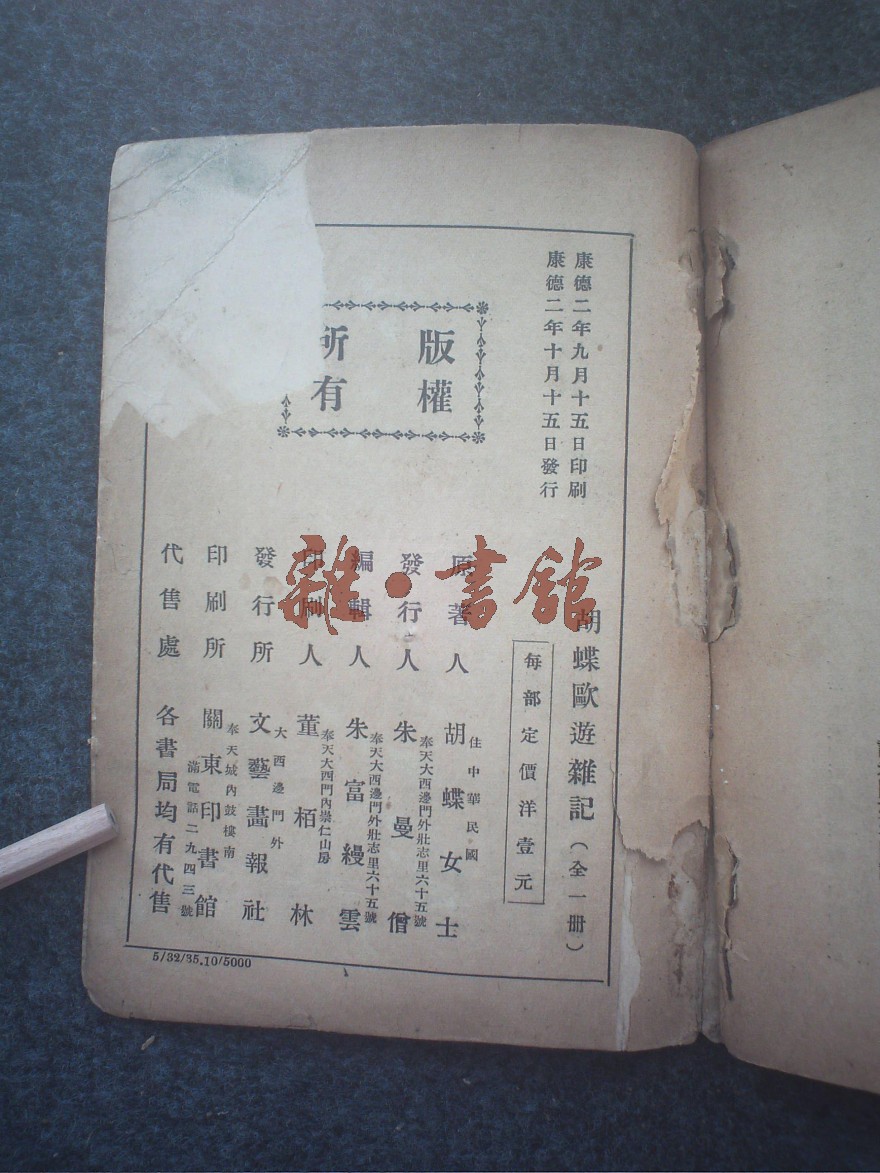 康德二年九月十五日印刷
康德二年十月十五日發行
版權
所有
胡蝶歐遊雜記（全一册）
每部定價洋壹元
原著人 住中華民國 胡蝶女士
發行人 奉天大西邊門外壯志里六十五號 朱曼僧
編輯人 奉天大西邊門外壯志里六十五號 朱富縵雲
印刷人 奉天大西門內崇仁山房 董栢林
發行所 大西邊門外 文藝畵報社
印刷所 奉天城內鼓樓南 關東印書館 滿電話二九四三號
代售處 各書局均有代售
5/32/35.10/5000
雜·書館